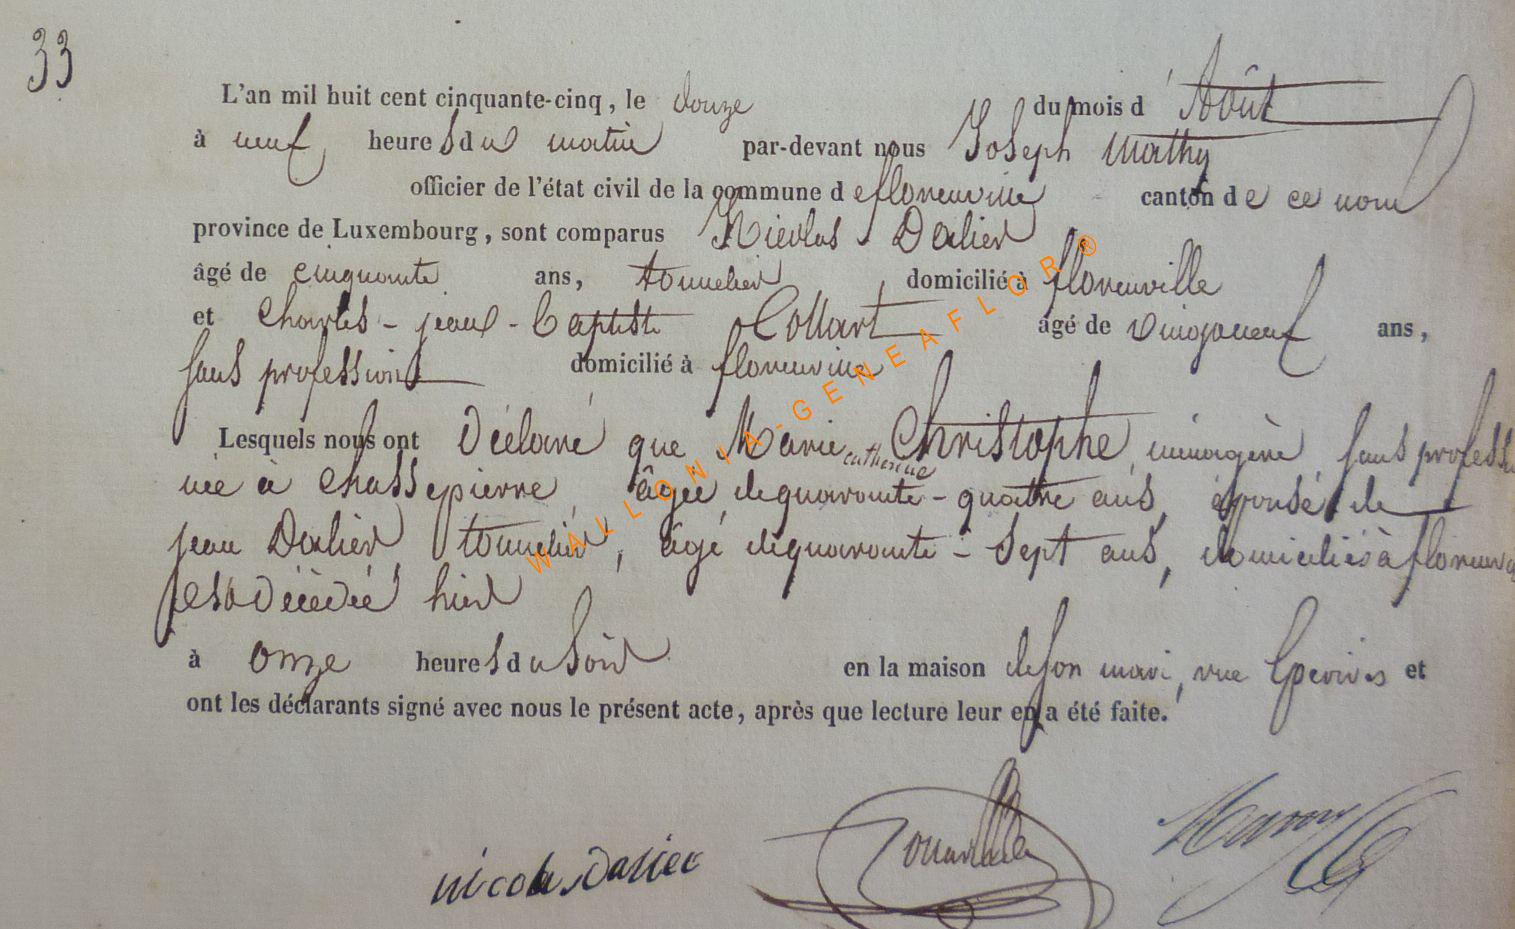 33
L'an mil huit cent cinquante-cinq, le douze du mois d'Août
à neuf heures du matin par-devant nous Joseph Mathy
officier de l'état civil de la commune de florenville canton de ce nom
province de Luxembourg, sont comparus Nicolas Dalier
âgé de cinquante ans, tonnelier, domicilié à florenville
et Charles-jean-baptiste Collart âgé de vingtneuf ans,
sans profession domicilié à florenville
Lesquels nous ont déclaré que Marie catherine Christophe, ménagère, sans profess
née à chassepierre âgée de quarante-quatre ans, épouse de
jean Dalier tonnelier, âgé de quarante-sept ans, domiciliés à
est décédée hier
à onze heures du soir en la maison de son mari, rue et
ont les déclarants signé avec nous le présent acte, après que lecture leur en a été faite.
nicolas Dalier
WALLONIA-GENEAFLOR®